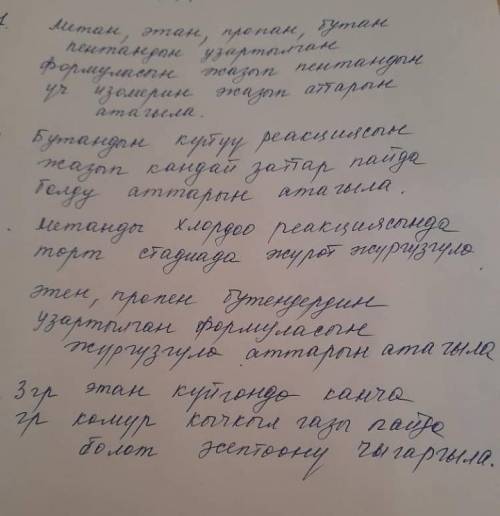 1. Метан, этан, пропан, бутан
пентандын узартылган
формуласын жазып пентандын
уч изомерин жазып аттарын
атагыла.
Бутандын куйуу реакциясын
жазып кандай заттар пайда
болду аттарын атагыла.
Метанды хлордоо реакциясында
торт стадиада журот жургузгуло
этен, пропен бутендердин
узартылган формуласын
жургузгуло аттарын атагыла
3 гр этан куйгондо канча
гр комур кычкыл газы пайда
болот эсептоону чыгаргыла.